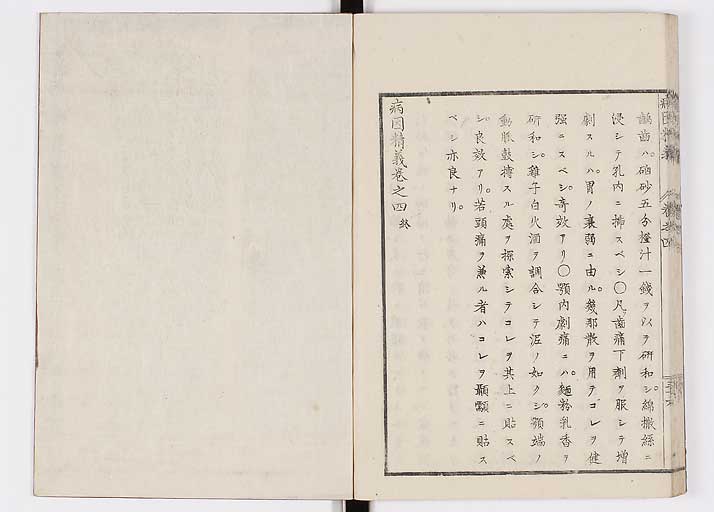 齲歯ハ。硇砂五分橙汁一錢ヲ以ヲ研和シ。綿撒絲ニ
浸シテ孔内ニ挿スベシ〇凡歯痛下劑ヲ服シテ増
劇スルハ。胃ノ衰弱ニ由ル。幾那散ヲ用テコレヲ健
强ニスベシ。奇效アリ〇顎内劇痛ニハ。麺粉乳香ヲ
研和シ。雞子白火酒ヲ調合シテ泥ノ如クシ。顎端ノ
動脈鼓搏スル處ヲ探索シテコレヲ其上ニ貼スベ
シ。良效アリ。若頭痛ヲ兼ル者ハコレヲ顳顬ニ貼ス
ベシ亦良ナリ。
病因精義卷之四終